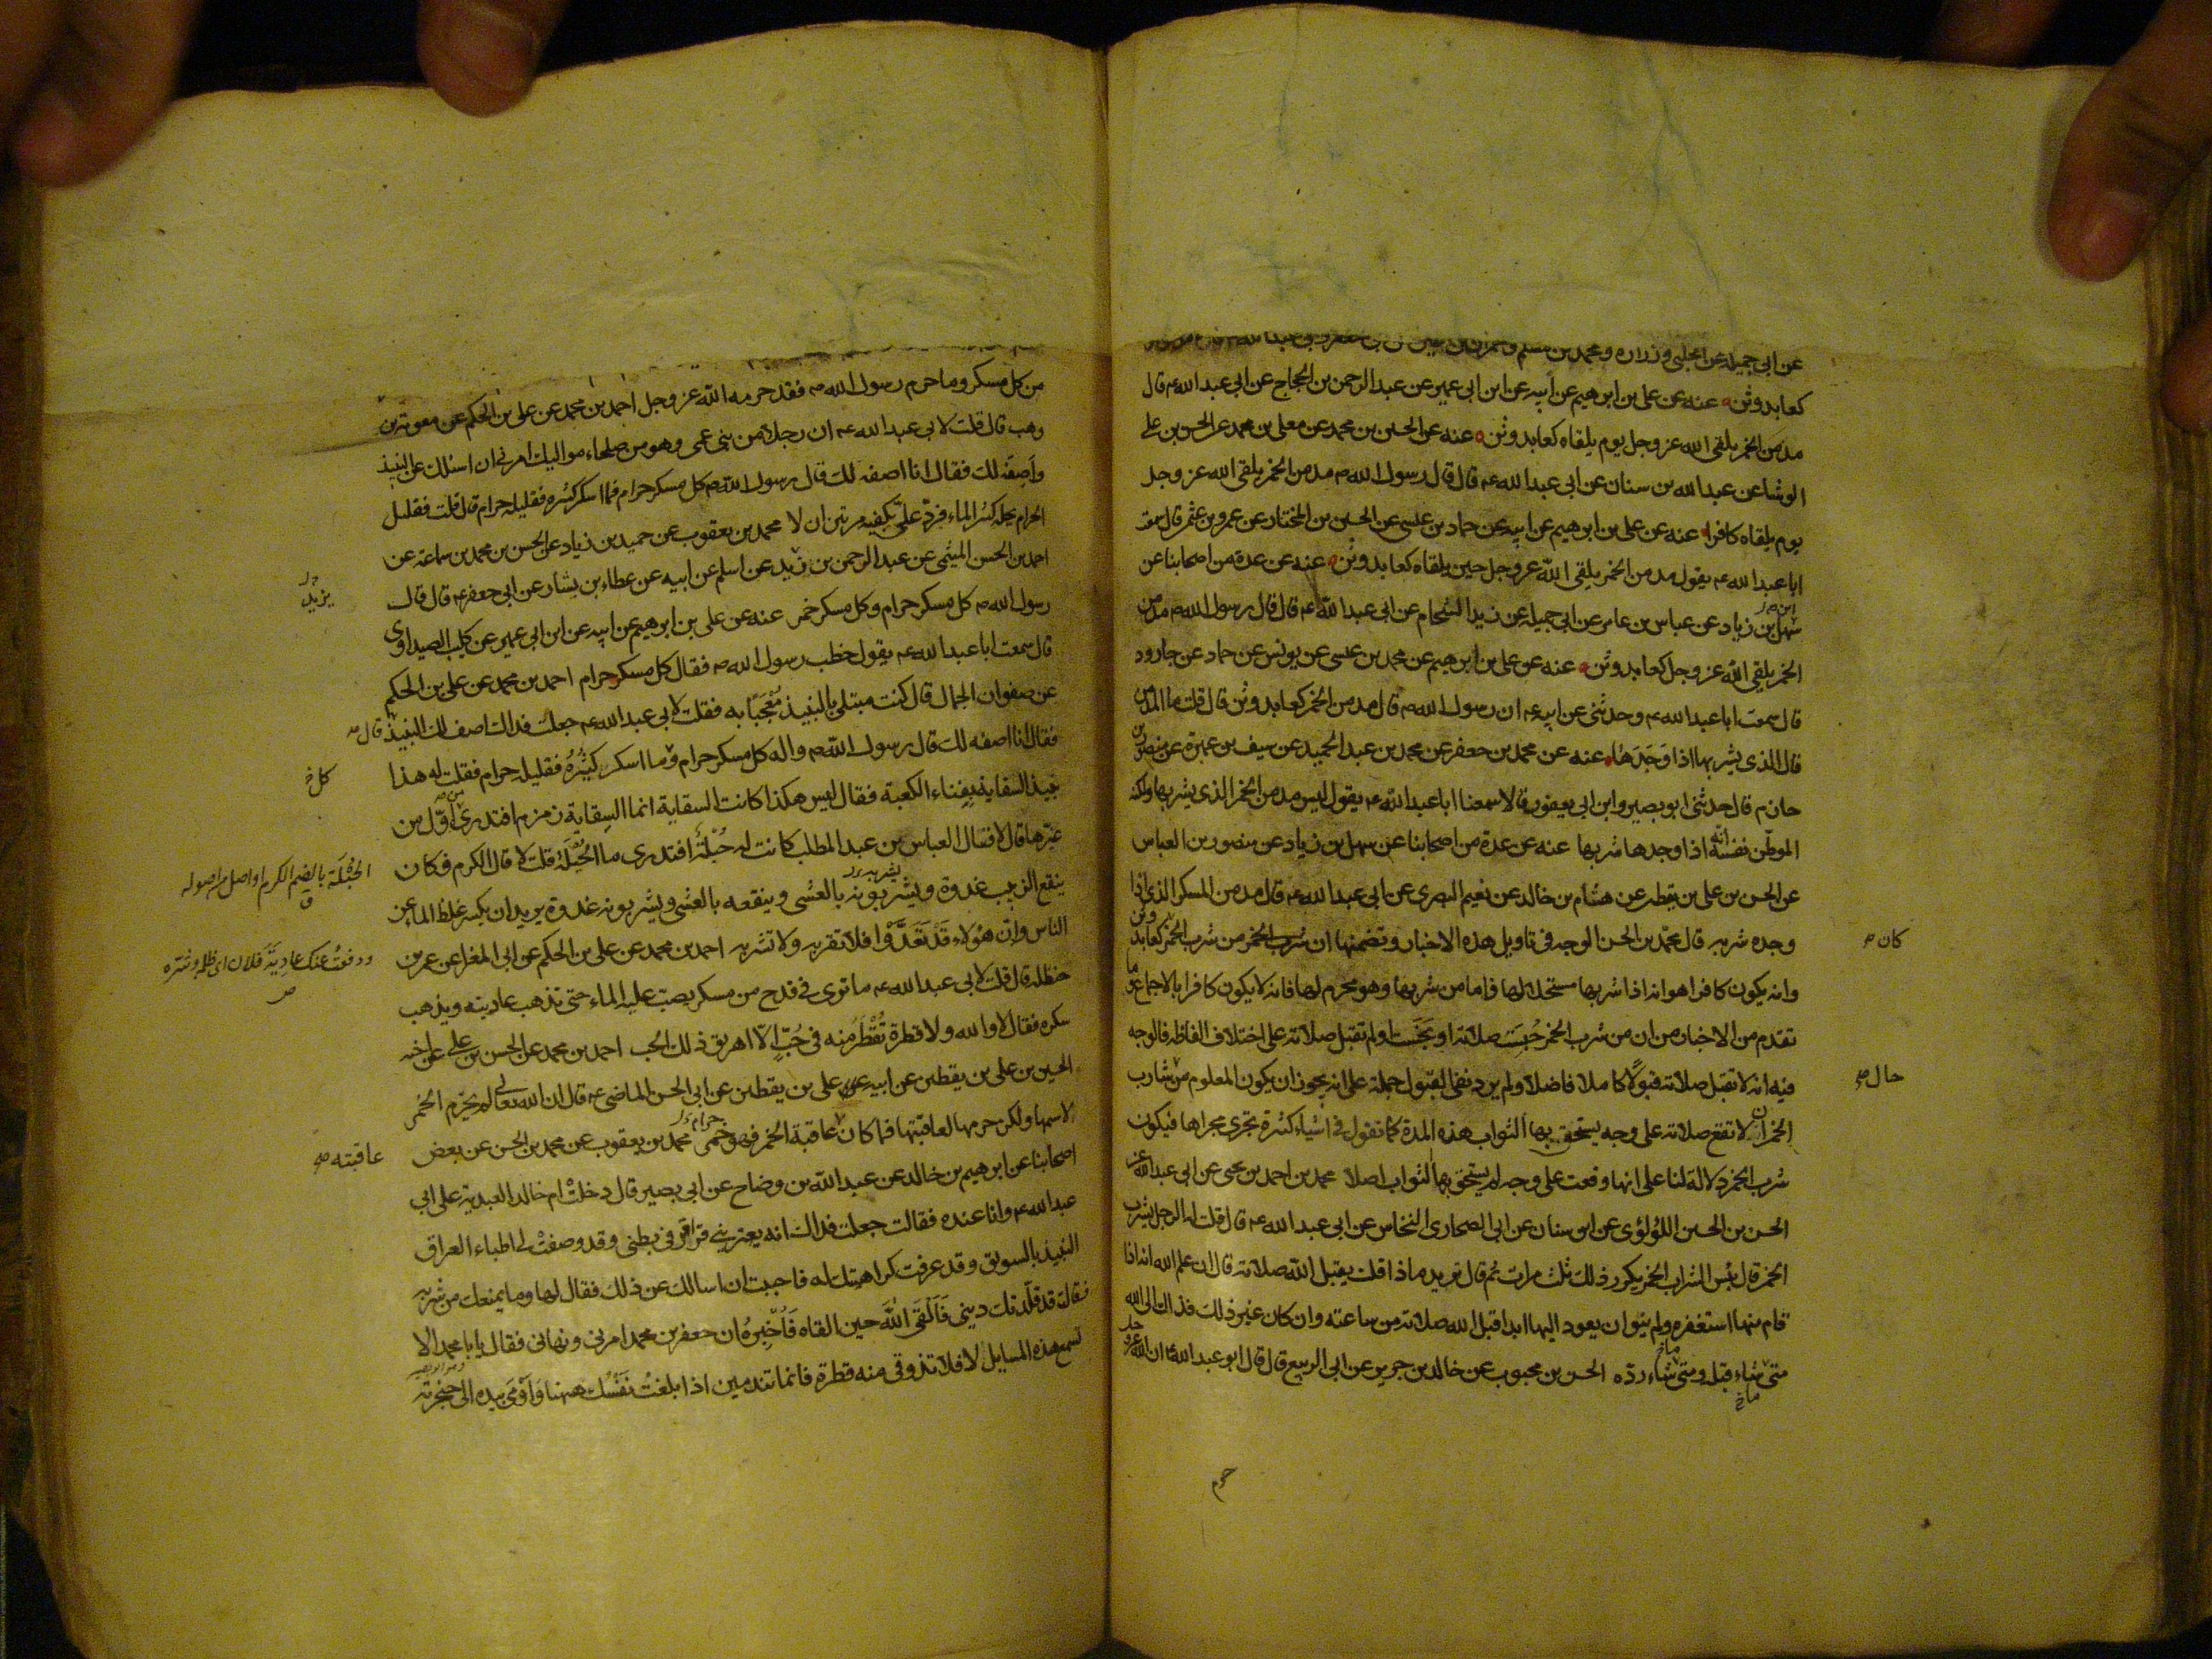 عن ابى جميلة عن العجلى وزرارة ومحمد بن مسلم وحمران بن اعين عن ابى جعفر وابى عبد الله
كعابد وثن عنه عن على بن ابرهيم عن ابيه عن ابن ابى عمير عن عبد الرحمن بن الحجاج عن ابى عبد الله ع قال
مدمن الخمر يلقى الله عز وجل يوم يلقاه كعابد وثن عنه عن الحسين بن محمد عن معلى بن محمد عن الحسن بن على
الوشا عن عبد الله بن سنان عن ابى عبد الله ع قال قال رسول الله ص مدمن الخمر يلقى الله عز وجل
يوم يلقاه كافرا عنه عن على بن ابرهيم عن ابيه عن حماد بن عيسى عن الحسين بن المختار عن عمرو بن عثمن قال سمعت
ابا عبد الله ع يقول مدمن الخمر يلقى الله عز وجل حين يلقاه كعابد وثن عنه عن عدة من اصحابنا عن
سهل بن زياد عن عباس بن عامر عن ابى جميلة عن زيد الشحام عن ابى عبد الله ع قال قال رسول الله ص مدمن
الخمر يلقى الله عز وجل كعابد وثن عنه عن على بن ابرهيم عن محمد بن عيسى عن يونس عن حماد عن جارود
قال سمعت ابا عبد الله ع وحدثنى عن ابيه ع ان رسول الله ص قال مدمن الخمر كعابد وثن قال قلت ما المدمن
قال الذى يشربها اذا وَجَدَها عنه عن محمد بن جعفر عن محمد بن عبد الحميد عن سيف بن عميرة عن منصور بن
حازم قال حدثنى ابو بصير وابن ابى يعفور قالا سمعنا ابا عبد الله ع يقول ليس مدمن الخمر الذى يشربها ولكنه
الموطّن نفسه انه اذا وجدها شربها عنه عن عدة من اصحابنا عن سهل بن زياد عن منصور بن العباس
عن الحسن بن على بن يقطين عن هشام بن خالد عن نعيم البصرى عن ابى عبد الله ع قال مدمن المسكر الذى اذا
وجده شربه قال محمد بن الحسن الوجه فى تاويل هذه الاخبار وتضمنها ان شرب الخمر من شرب الخمر كعابد وثن
كان ص
وانه يكون كافرا هو انه اذا شربها مستحلا لها فاما من شربها وهو محرم لها فانه لا يكون كافرا بالاجماع
تقدم من الاخبار من ان من شرب الخمر حُبِسَت صلاته او بخست او لم تقبل صلاته على اختلاف الفاظه فالوجه
فيه انه لا تقبل صلاته قبولا كاملا فاضلا ولم يرد نفى القبول جملة على انه يجوز ان يكون المعلوم من شارب
حال ص
الخمر ان لا تقع صلاته على وجه يستحق بها الثواب هذه المدة كما نقول فى اشياء كثيرة تجرى مجراها فيكون
شرب الخمر دلالة لنا على انها وقعت على وجه لم يستحق بها الثواب اصلا محمد بن احمد بن يحيى عن ابى عبد الله عن
الحسن بن الحسين اللؤلؤى عن ابن سنان عن ابى الصحارى النخاس عن ابى عبد الله ع قال قلت له الرجل يشرب
الخمر قال بئس الشراب الخمر يكرر ذلك ثلث مرات ثم قال تريد ماذا قلت يقبل الله صلاته قال ان علم الله انه اذا
قام منها استغفره ولم ينو ان يعود اليها ابدا قبل الله صلاته من ساعته وان كان غير ذلك فذاك الى الله
متى شاء قبل ومتى شاء ردّه الحسن بن محبوب عن خالد بن جرير عن ابى الربيع قال قال ابو عبد الله ع ان الله عز وجل
حرم
من كل مسكر وما حرم رسول الله ص فقد حرمه الله عز وجل احمد بن محمد عن على بن الحكم عن معوية بن
وهب قال قلت لابى عبد الله ع ان رجلا من بنى عمى وهو من صلحاء مواليك امرنى ان اسئلك عن النبيذ
واَصِفَه لك فقال انا اصفه لك قال رسول الله ص كل مسكر حرام فما اسكر كثيره فقليله حرام قال قلت فقليل
الحرام يحله كثير الماء فردّ علىّ بكفيه مرتين ان لا محمد بن يعقوب عن حميد بن زياد عن الحسن بن محمد بن سماعة عن
احمد بن الحسن الميثمى عن عبد الرحمن بن زيد عن اسلم عن ابيه عن عطاء بن يشار عن ابى جعفر ع قال قال
يزيد
رسول الله ص كل مسكر حرام وكل مسكر خمر عنه عن على بن ابرهيم عن ابيه عن ابن ابى عمير عن كليب الصيداوى
قال سمعت ابا عبد الله ع يقول خطب رسول الله ص فقال كل مسكر حرام احمد بن محمد عن على بن الحكم
عن صفوان الجمال قال كنت مبتلى بالنبيذ مُعْجَبًا به فقلت لابى عبد الله ع جعلت فداك اصف لك النبيذ
قال ص
فقال انا اصفه لك قال رسول الله ص واله كل مسكر حرام وما اسكر كَثيرُهُ فقليله حرام فقلت له هذا
كل خ
نبيذ السقاية بِفِناء الكعبة فقال ليس هكذا كانت السقاية انما السِقاية زمزم افتدرى اوّل من
غيّرها قال لا فقال العباس بن عبد المطلب كانت له حُبْلَة افتدرى ما الحُبْلَة قلت لا قال الكرم فكان
الحُبْلَة بالضم الكرم او اصل من اصوله ق
ينقع الزبيب غدوة ويشربونه بالعشى وينقعه بالعشى ويشربونه غدوة يريد ان يكسر غلظ الماء عن
الناس وان هؤلاء قَد تَعَدَّوْا فلا تقربه ولا تشربه احمد بن محمد عن على بن الحكم عن ابى المغرا عن عمر بن
ودفعتُ عنك عادِيَةَ فلان اى ظلمه وشره ص
حنظلة قال قلت لابى عبد الله ع ما ترى فى قدح من مسكر يصب عليه الماء حتى تذهب عاديته ويذهب
سكره فقال لا والله ولا قطرة تُقْطَرُ منه فى حُبٍّ الّا اهريق ذلك الحب احمد بن محمد عن الحسن بن على عن اخيه
الحسين بن على بن يقطين عن ابيه على بن يقطين عن ابى الحسن الماضى ع قال ان الله تعالى لم يحرّم الخمر
لاسمها ولكن حرمها لعاقبتها فما كان عاقبة الخمر فهو خمر محمد بن يعقوب عن محمد بن الحسن عن بعض
عاقبته ص
اصحابنا عن ابرهيم بن خالد عن عبد الله بن وضاح عن ابى بصير قال دخلتْ ام خالد العبدية على ابى
عبد الله ع وانا عنده فقالت جعلت فداك انه يعترينى قراقر فى بطنى وقد وصفتْ لى اطباء العراق
النبيذ بالسويق وقد عرفت كراهتك له فاحببت ان اسالك عن ذلك فقال لها وما يمنعك من شربه
فقالت قد قلّدتك دينى فَاَلْقَى اللهَ حين القاه فَاُخْبِرهُ ان جعفر بن محمد امرنى ونهانى فقال يا ابا محمد الا
تسمع هذه المسايل لا فلا تذوقى منه قطرة فانما تندمين اذا بلغتْ نَفَسُك ههنا وَاَوْمَى بيده الى حنجرته